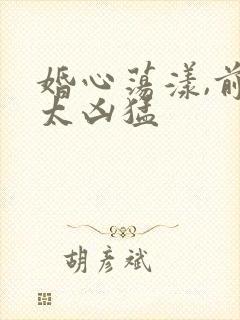 婚心荡漾,前
太凶猛
胡彦斌